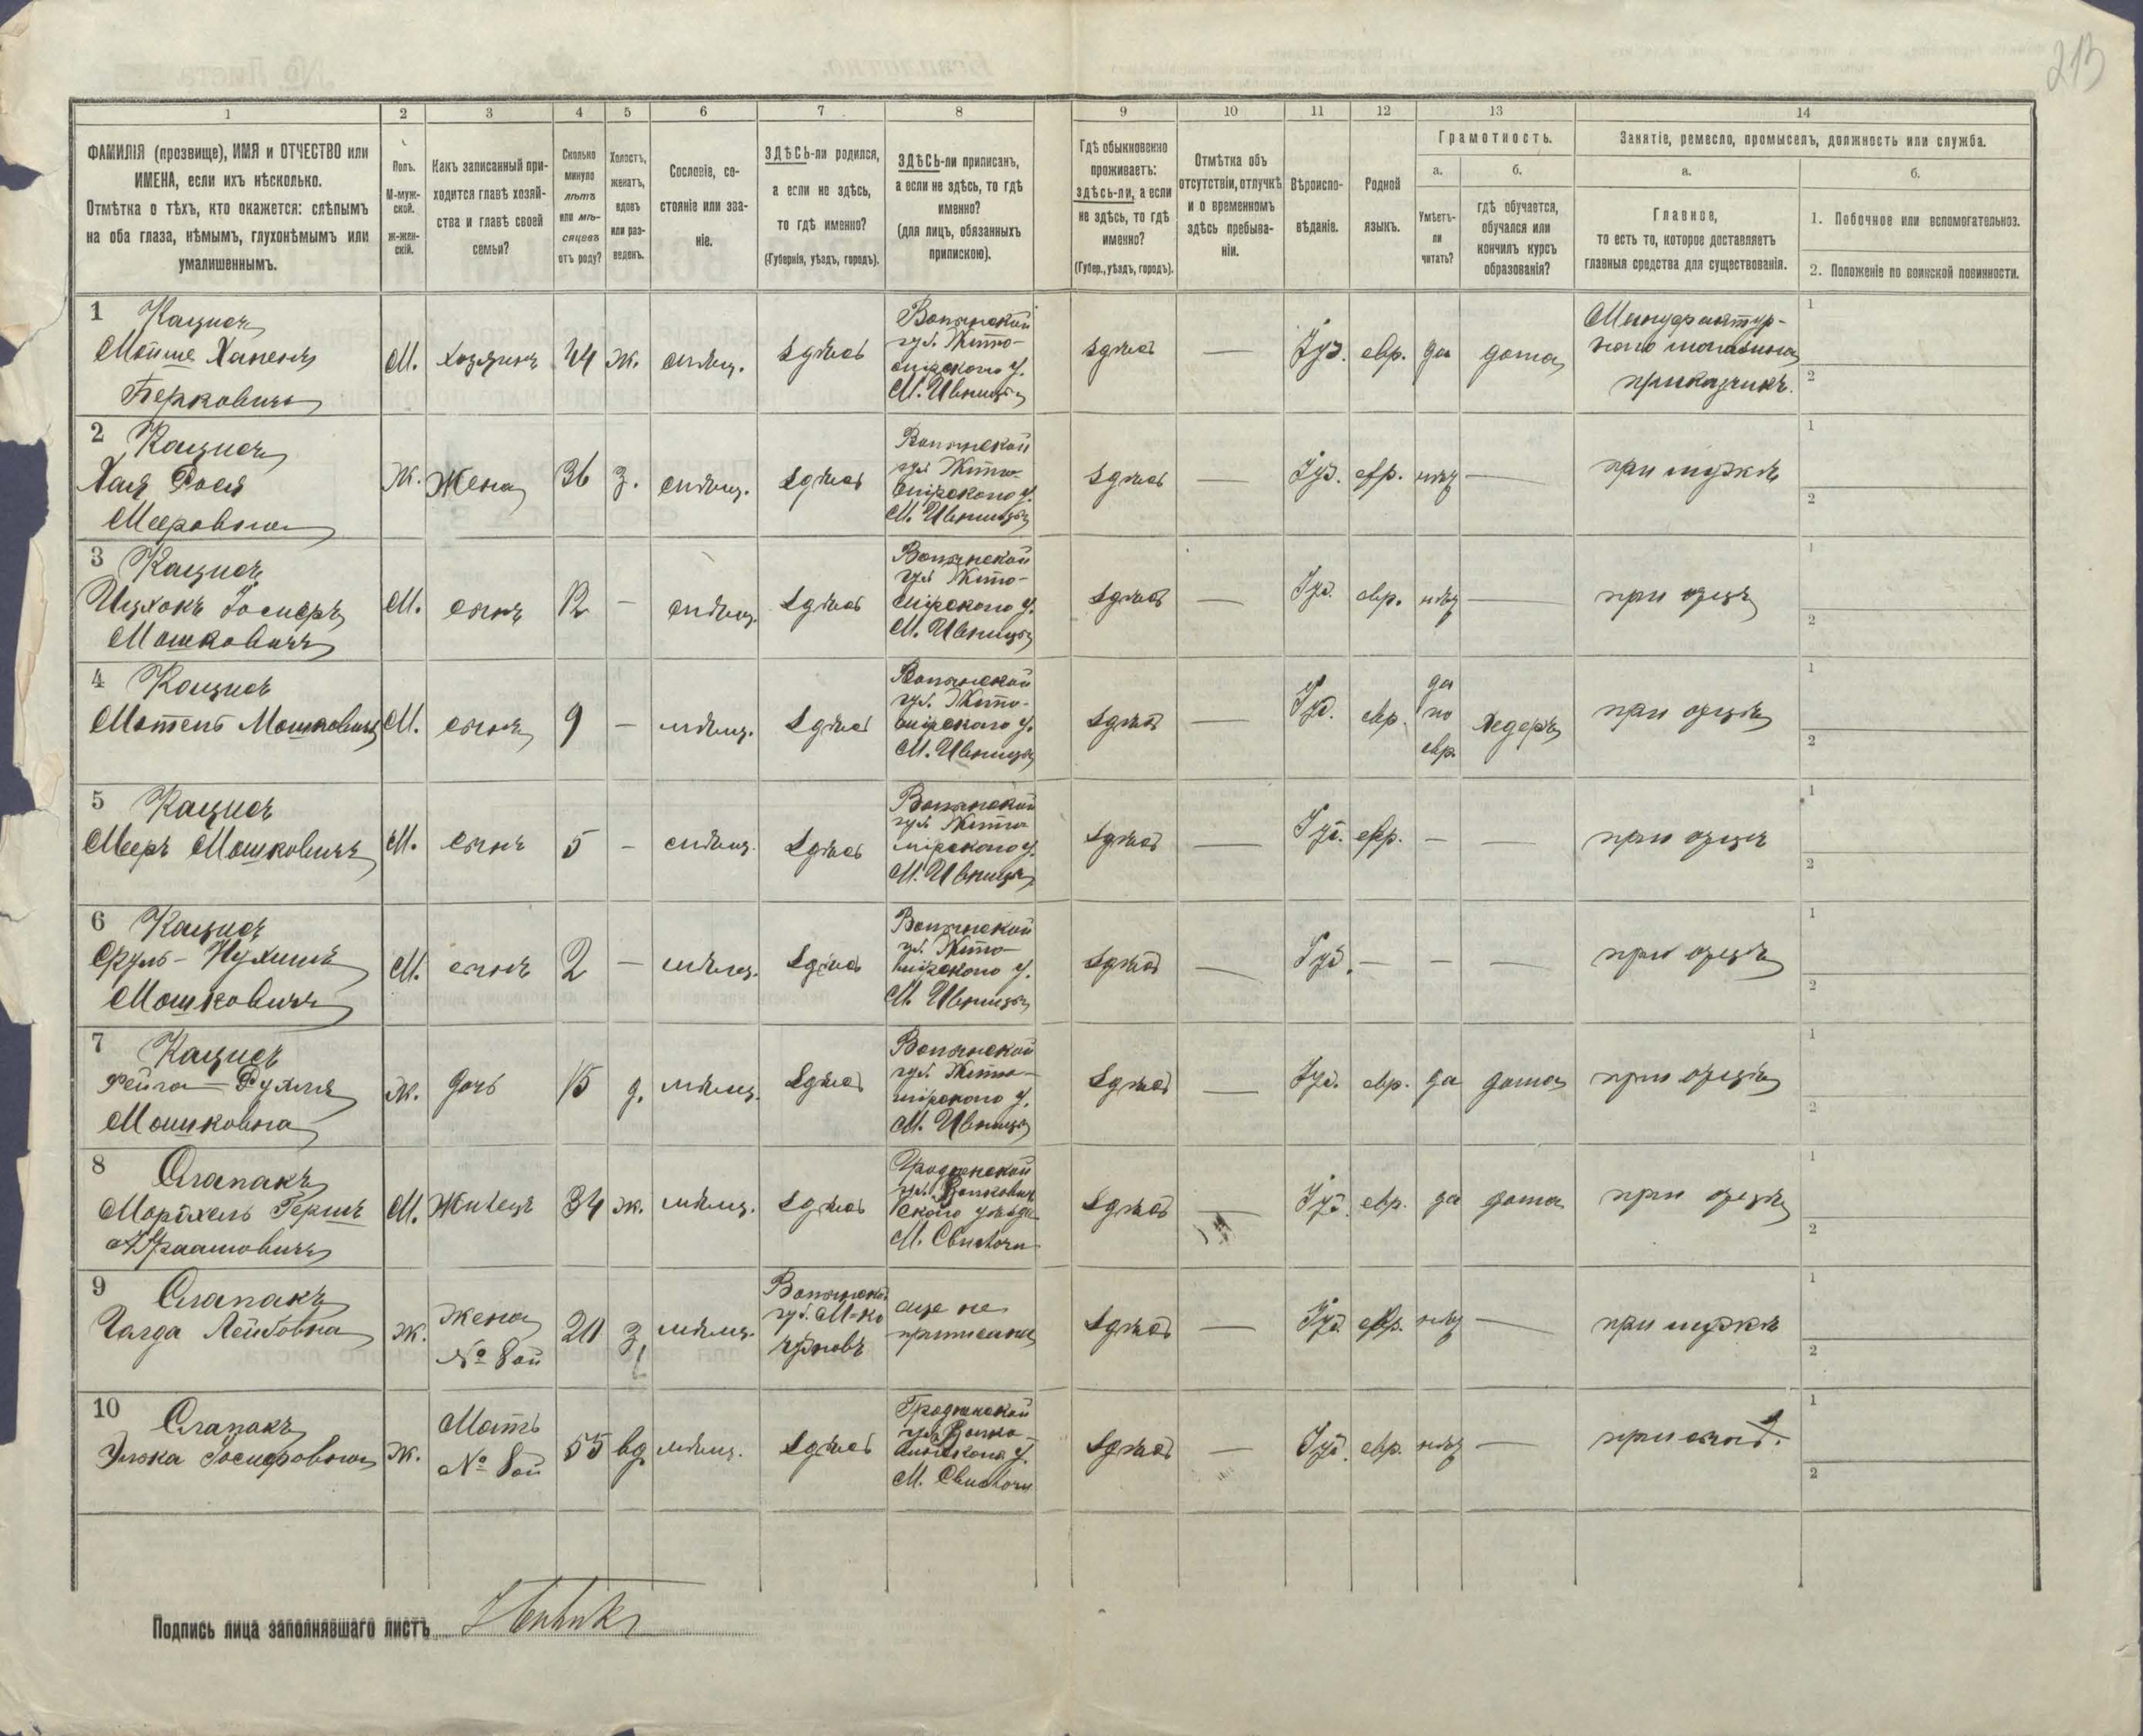 213
1
2
3
4
5
6
7
8
9
10
11
12
13
14
ФАМИЛІЯ (прозвище), ИМЯ и ОТЧЕСТВО или
ИМЕНА, если ихъ нѣсколько.
Отмѣтка о тѣхъ, кто окажется: слѣпымъ
на оба глаза, нѣмымъ, глухонѣмымъ или
умалишеннымъ.
Полъ.
М-муж-
ской.
ж-жен-
скій.
Какъ записанный при-
ходится главѣ хозяй-
ства и главѣ своей
семьи?
Сколько
минуло
лѣтъ
или мѣ-
сяцевъ
отъ роду?
Холостъ,
женатъ,
вдовъ
или раз-
веденъ.
Сословіе, со-
стояніе или зва-
ніе.
ЗДѢСЬ-ли родился,
а если не здѣсь,
то гдѣ именно?
(Губернія, уѣздъ, городъ).
ЗДѢСЬ-ли приписанъ,
а если не здѣсь, то гдѣ
именно?
(для лицъ, обязанныхъ
припискою).
Гдѣ обыкновенно
проживаетъ:
здѣсь-ли, а если
не здѣсь, то гдѣ
именно?
(Губер., уѣздъ, городъ).
Отмѣтка объ
отсутствіи, отлучкѣ
и о временномъ
здѣсь пребыва-
ніи.
Вѣроиспо-
вѣданіе.
Родной
языкъ.
Грамотность.
а.
Умѣетъ-
ли
читать?
б.
гдѣ обучается,
обучался или
кончилъ курсъ
образованія?
Занятіе, ремесло, промыселъ, должность или служба.
а.
Главное,
то есть то, которое доставляетъ
главныя средства для существованія.
б.
1. Побочное или вспомогательное.
2. Положеніе по воинской повинности.
1 Кацисъ
Мойше Ханенъ
Берковичъ
М.
хозяинъ
44
ж.
мѣщ.
здѣсь
Волынской
губ. Жито-
мірскаго у.
М. Ивницы
здѣсь
—
Іуд.
евр.
да
дома
Мануфактур-
наго магазина
приказчикъ.
1
2
2 Кацисъ
Хая Рося
Мееровна
Ж.
Жена
36
з.
мѣщ.
здѣсь
Волынской
губ. Жито-
мірскаго у.
М. Ивницы
здѣсь
—
Іуд.
евр.
нѣтъ
—
при мужѣ
1
2
3 Кацисъ
Ицхокъ Іосифъ
Мошковичъ
М.
сынъ
12
—
мѣщ.
здѣсь
Волынской
губ. Жито-
мірскаго у.
М. Ивницы
здѣсь
—
Іуд.
евр.
нѣтъ
—
при отцѣ
1
2
4 Кацисъ
Мотель Мошковичъ
М.
сынъ
9
—
мѣщ.
здѣсь
Волынской
губ. Жито-
мірскаго у.
М. Ивницы
здѣсь
—
Іуд.
евр.
да
по
евр.
Хедеръ
при отцѣ
1
2
5 Кацисъ
Мееръ Мошковичъ
М.
сынъ
5
—
мѣщ.
здѣсь
Волынской
губ. Жито-
мірскаго у.
М. Ивницы
здѣсь
—
Іуд.
евр.
—
—
при отцѣ
1
2
6 Кацисъ
Сруль-Нухимъ
Мошковичъ
М.
сынъ
2
—
мѣщ.
здѣсь
Волынской
губ. Жито-
мірскаго у.
М. Ивницы
здѣсь
—
Іуд.
—
—
—
при отцѣ
1
2
7 Кацисъ
Фейга-Рухля
Мошковна
Ж.
дочь
15
д.
мѣщ.
здѣсь
Волынской
губ. Жито-
мірскаго у.
М. Ивницы
здѣсь
—
Іуд.
евр.
да
дома
при отцѣ
1
2
8 Слапакъ
Мордхель Гершъ
Абрамовичъ
М.
Жилецъ
34
ж.
мѣщ.
здѣсь
Гродненской
губ. Волковы-
скаго уѣзда
М. Свислочи
здѣсь
—
Іуд.
евр.
да
дома
при отцѣ
1
2
9 Слапакъ
Голда Лейбовна
ж.
жена
№ 8ой
20
з.
мѣщ.
Волынской
губ. М-ко
Чудновъ
еще не
приписана
здѣсь
—
Іуд.
евр.
нѣтъ
—
при мужѣ
1
2
10 Слапакъ
Элька Іосифовна
Ж.
Мать
№ 8ой
55
вд.
мѣщ.
здѣсь
Гродненской
губ. Волко-
выскаго у.
М. Свислочи
здѣсь
—
Іуд.
евр.
нѣтъ
—
при сынѣ.
1
2
Подпись лица заполнявшаго листъ